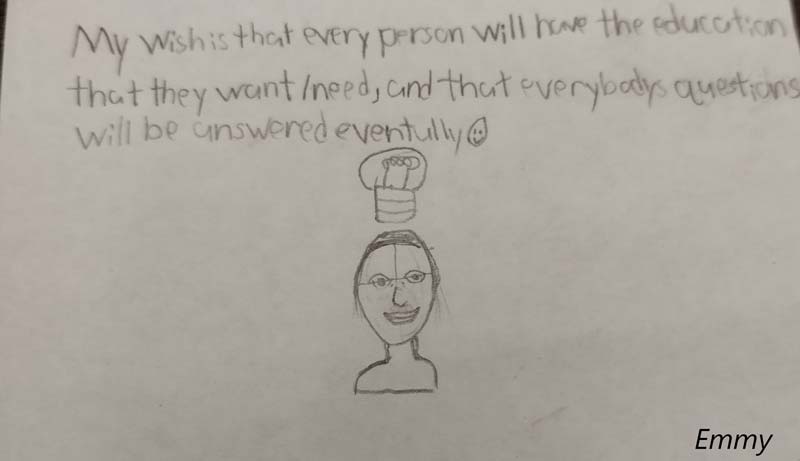 My wish is that every person will have the education
that they want/need, and that everybodys questions
will be answered eventully
Emmy